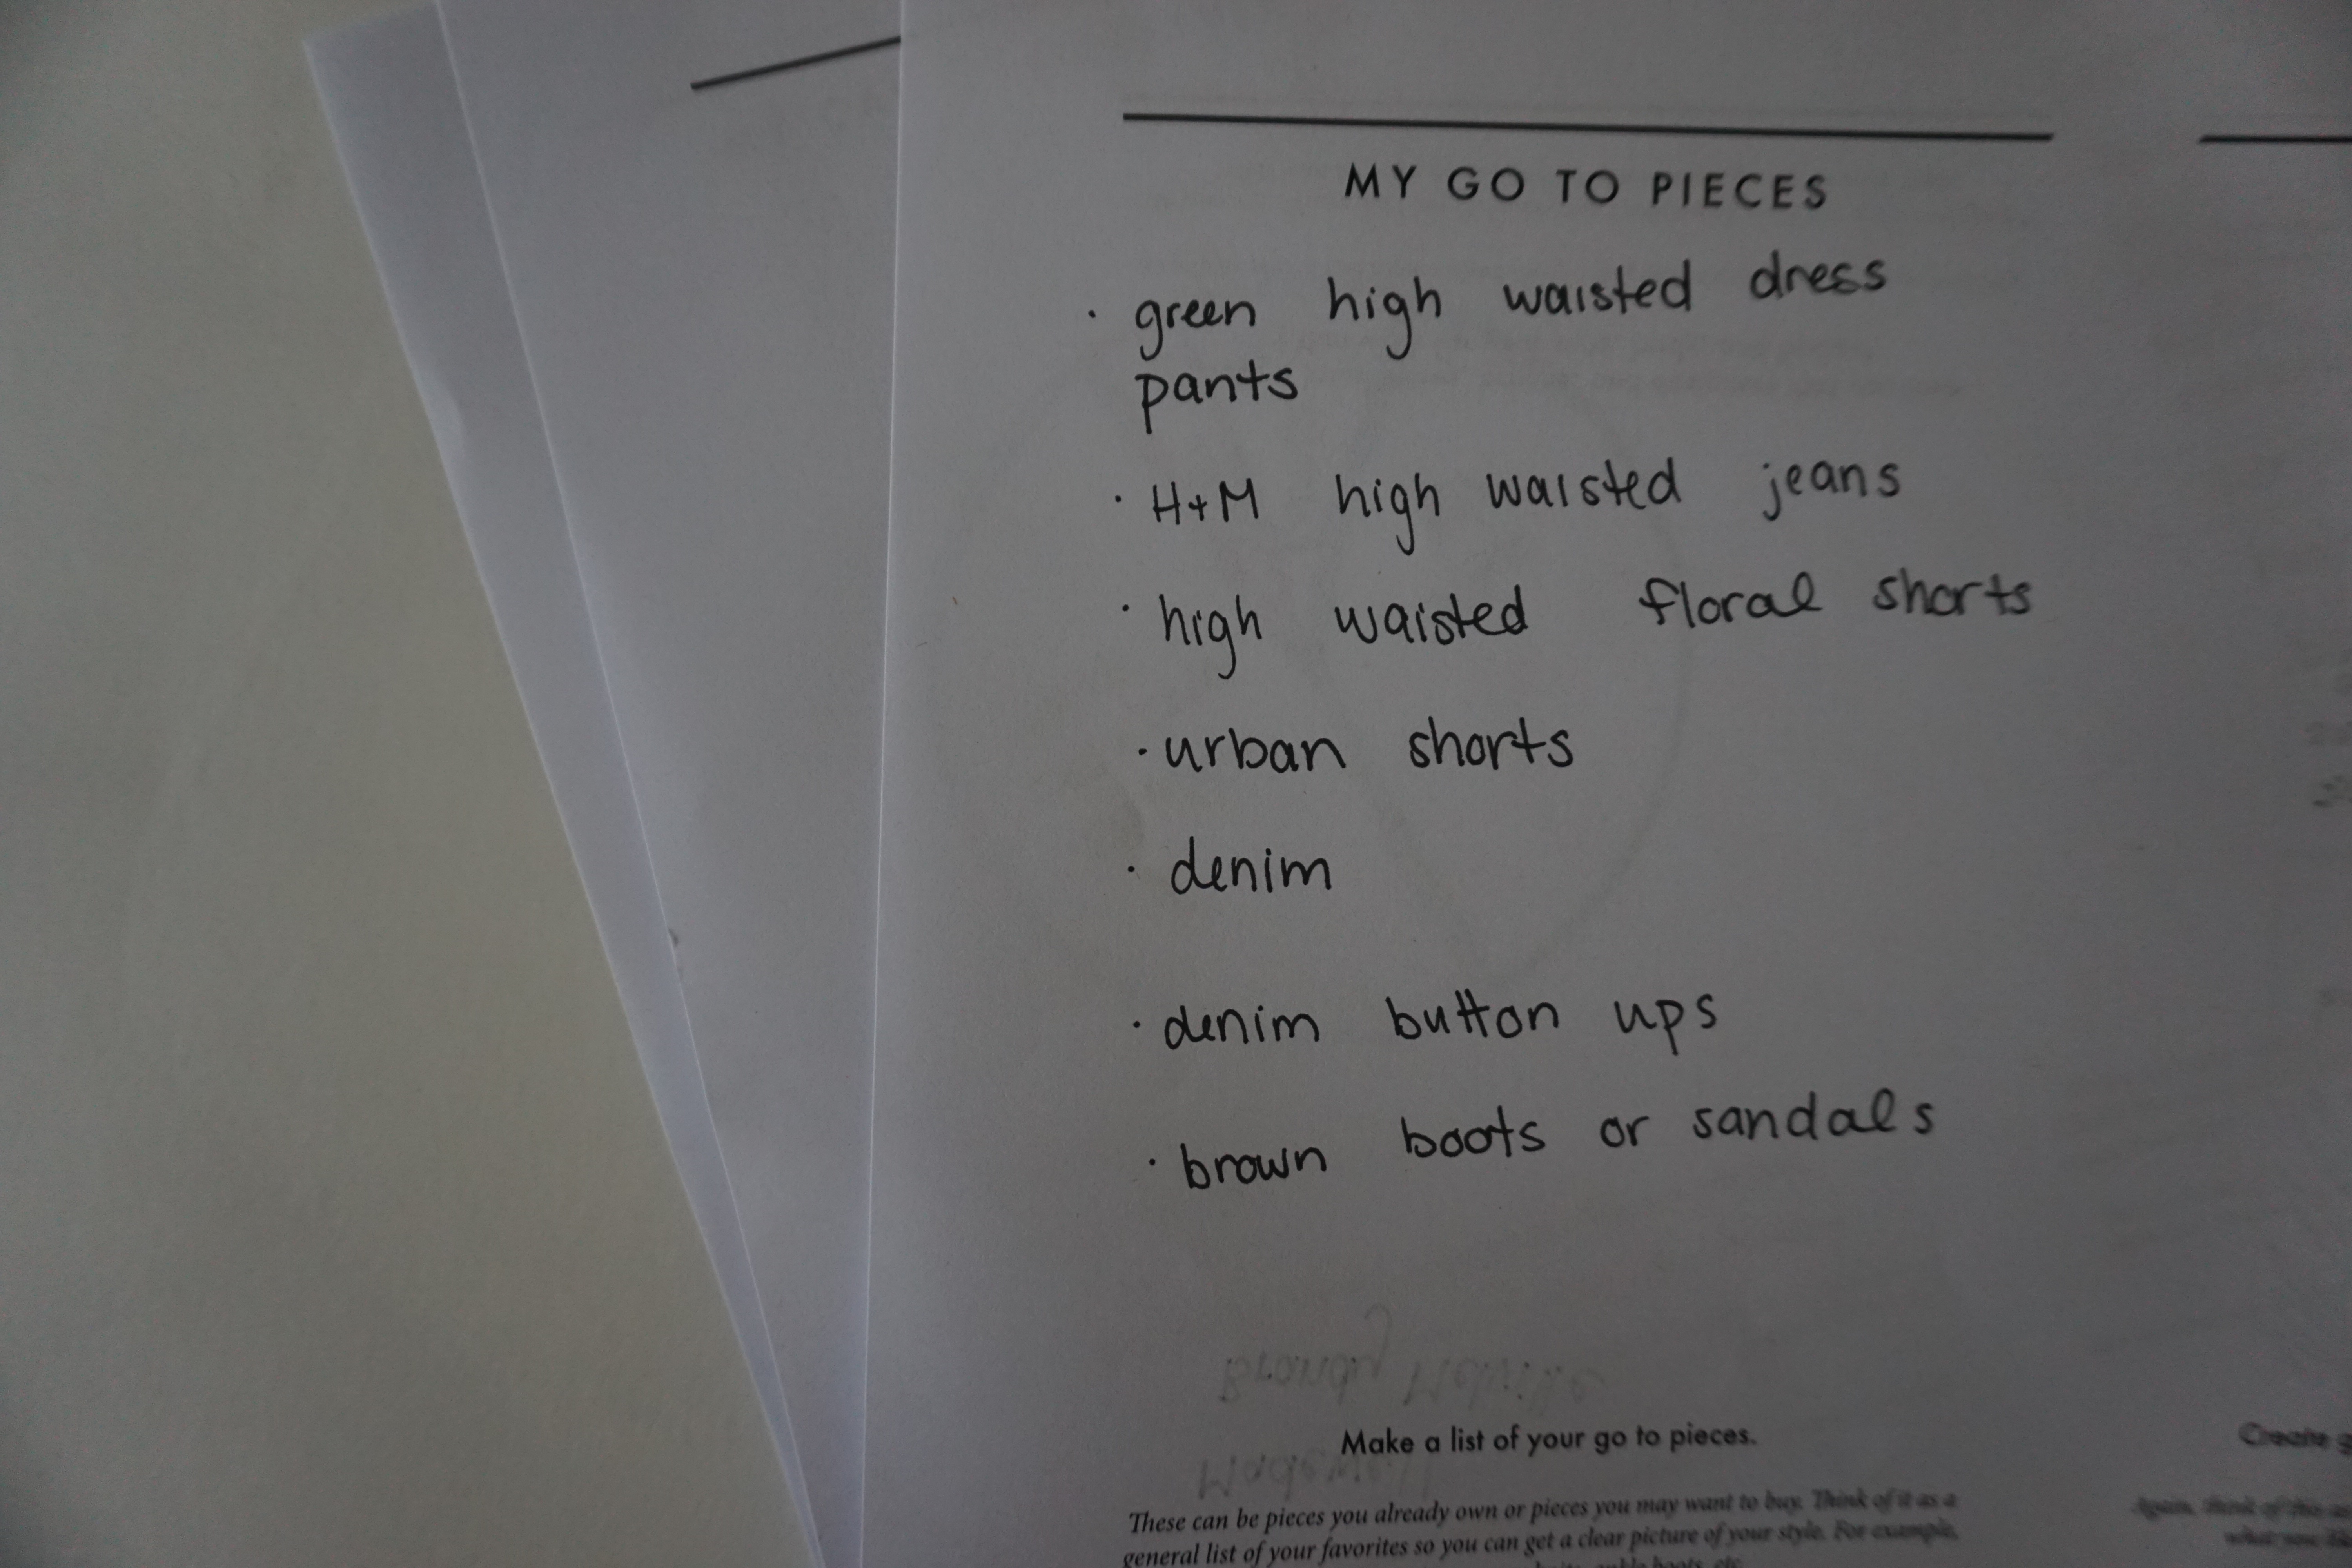 MY GO TO PIECES
· green high waisted dress
pants
· H+M high waisted jeans
· high waisted floral shorts
· urban shorts
· denim
· denim button ups
· brown boots or sandals
Make a list of your go to pieces.
Create
These can be pieces you already own or pieces you may want to buy. Think of it as a
Again, think of this
general list of your favorites so you can get a clear picture of your style. For example,
ankle boots, etc.